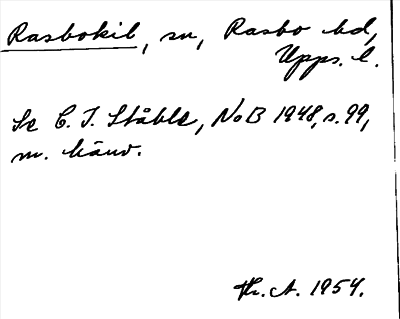 Rasbokil, sn, Rasbo hd,
Upps. l.
Se C. I. Ståhle, NoB 1948, s. 99,
m. hänv.
Hr. A. 1954.